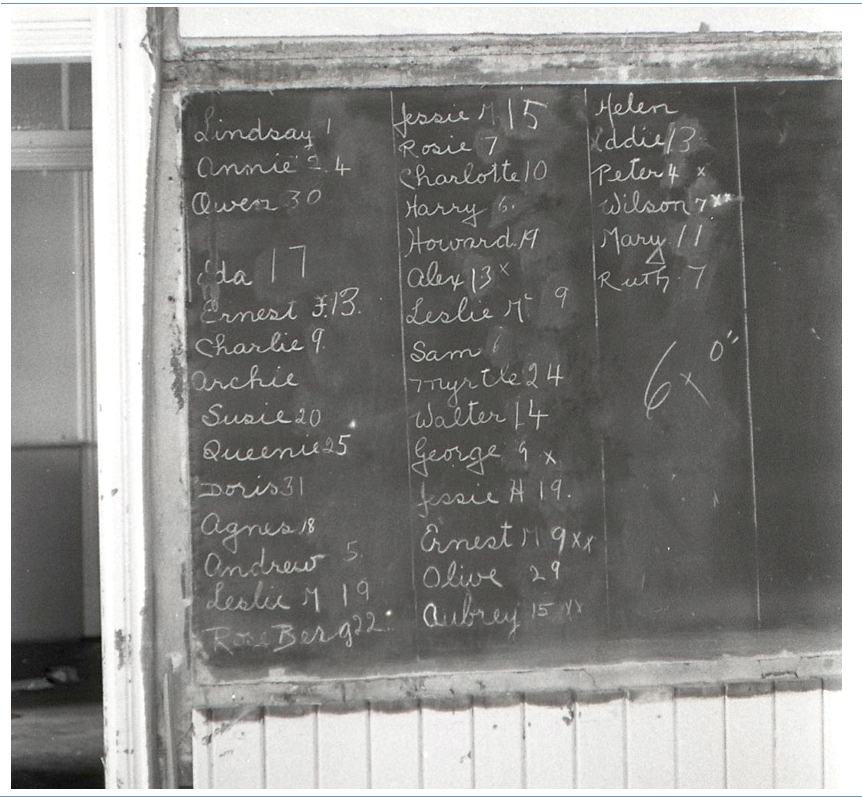 Lindsay 1
Annie 2 4
Owen 30
Ida 17
Ernest F. 13.
Charlie 9
Archie
Susie 20
Queenie 25
Doris 31
Agnes 18
Andrew 5
Leslie M 19
Rose Berg 22
Jessie M 15
Rosie 7
Charlotte 10
Harry 6.
Howard 19
Alex 13 x
Leslie Mc 9
Sam
Myrtle 24
Walter 14
George 9 x
Jessie H 19.
Ernest M 9 xx
Olive 29
Aubrey 15 xx
Helen
Eddie 13
Peter 4 x
Wilson 7 xx
Mary 11
Ruth 7
6 x 0"